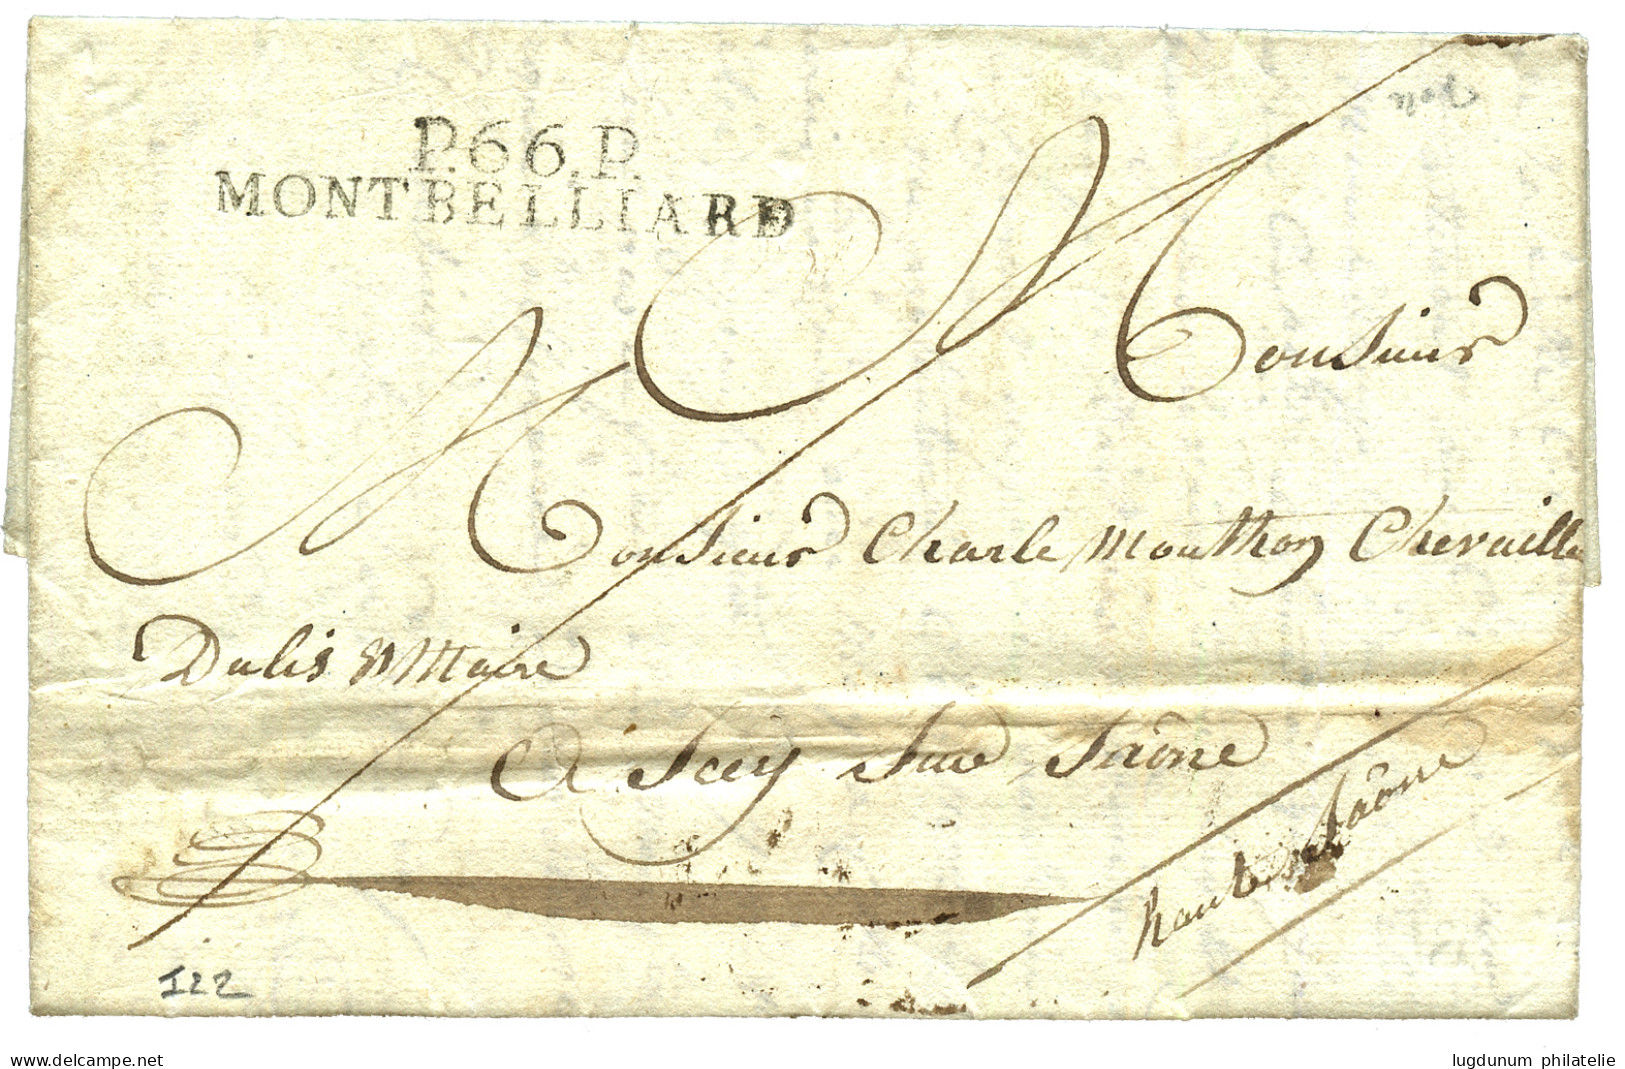 P.66.P.
MONTBELLIARD
Monsieur
Monsieur Charle Mouthon Chevaillé
Dulis & Maire
A Scey sur Saône
haute Saône
I22
delcampe.net
lugdunum philatelie